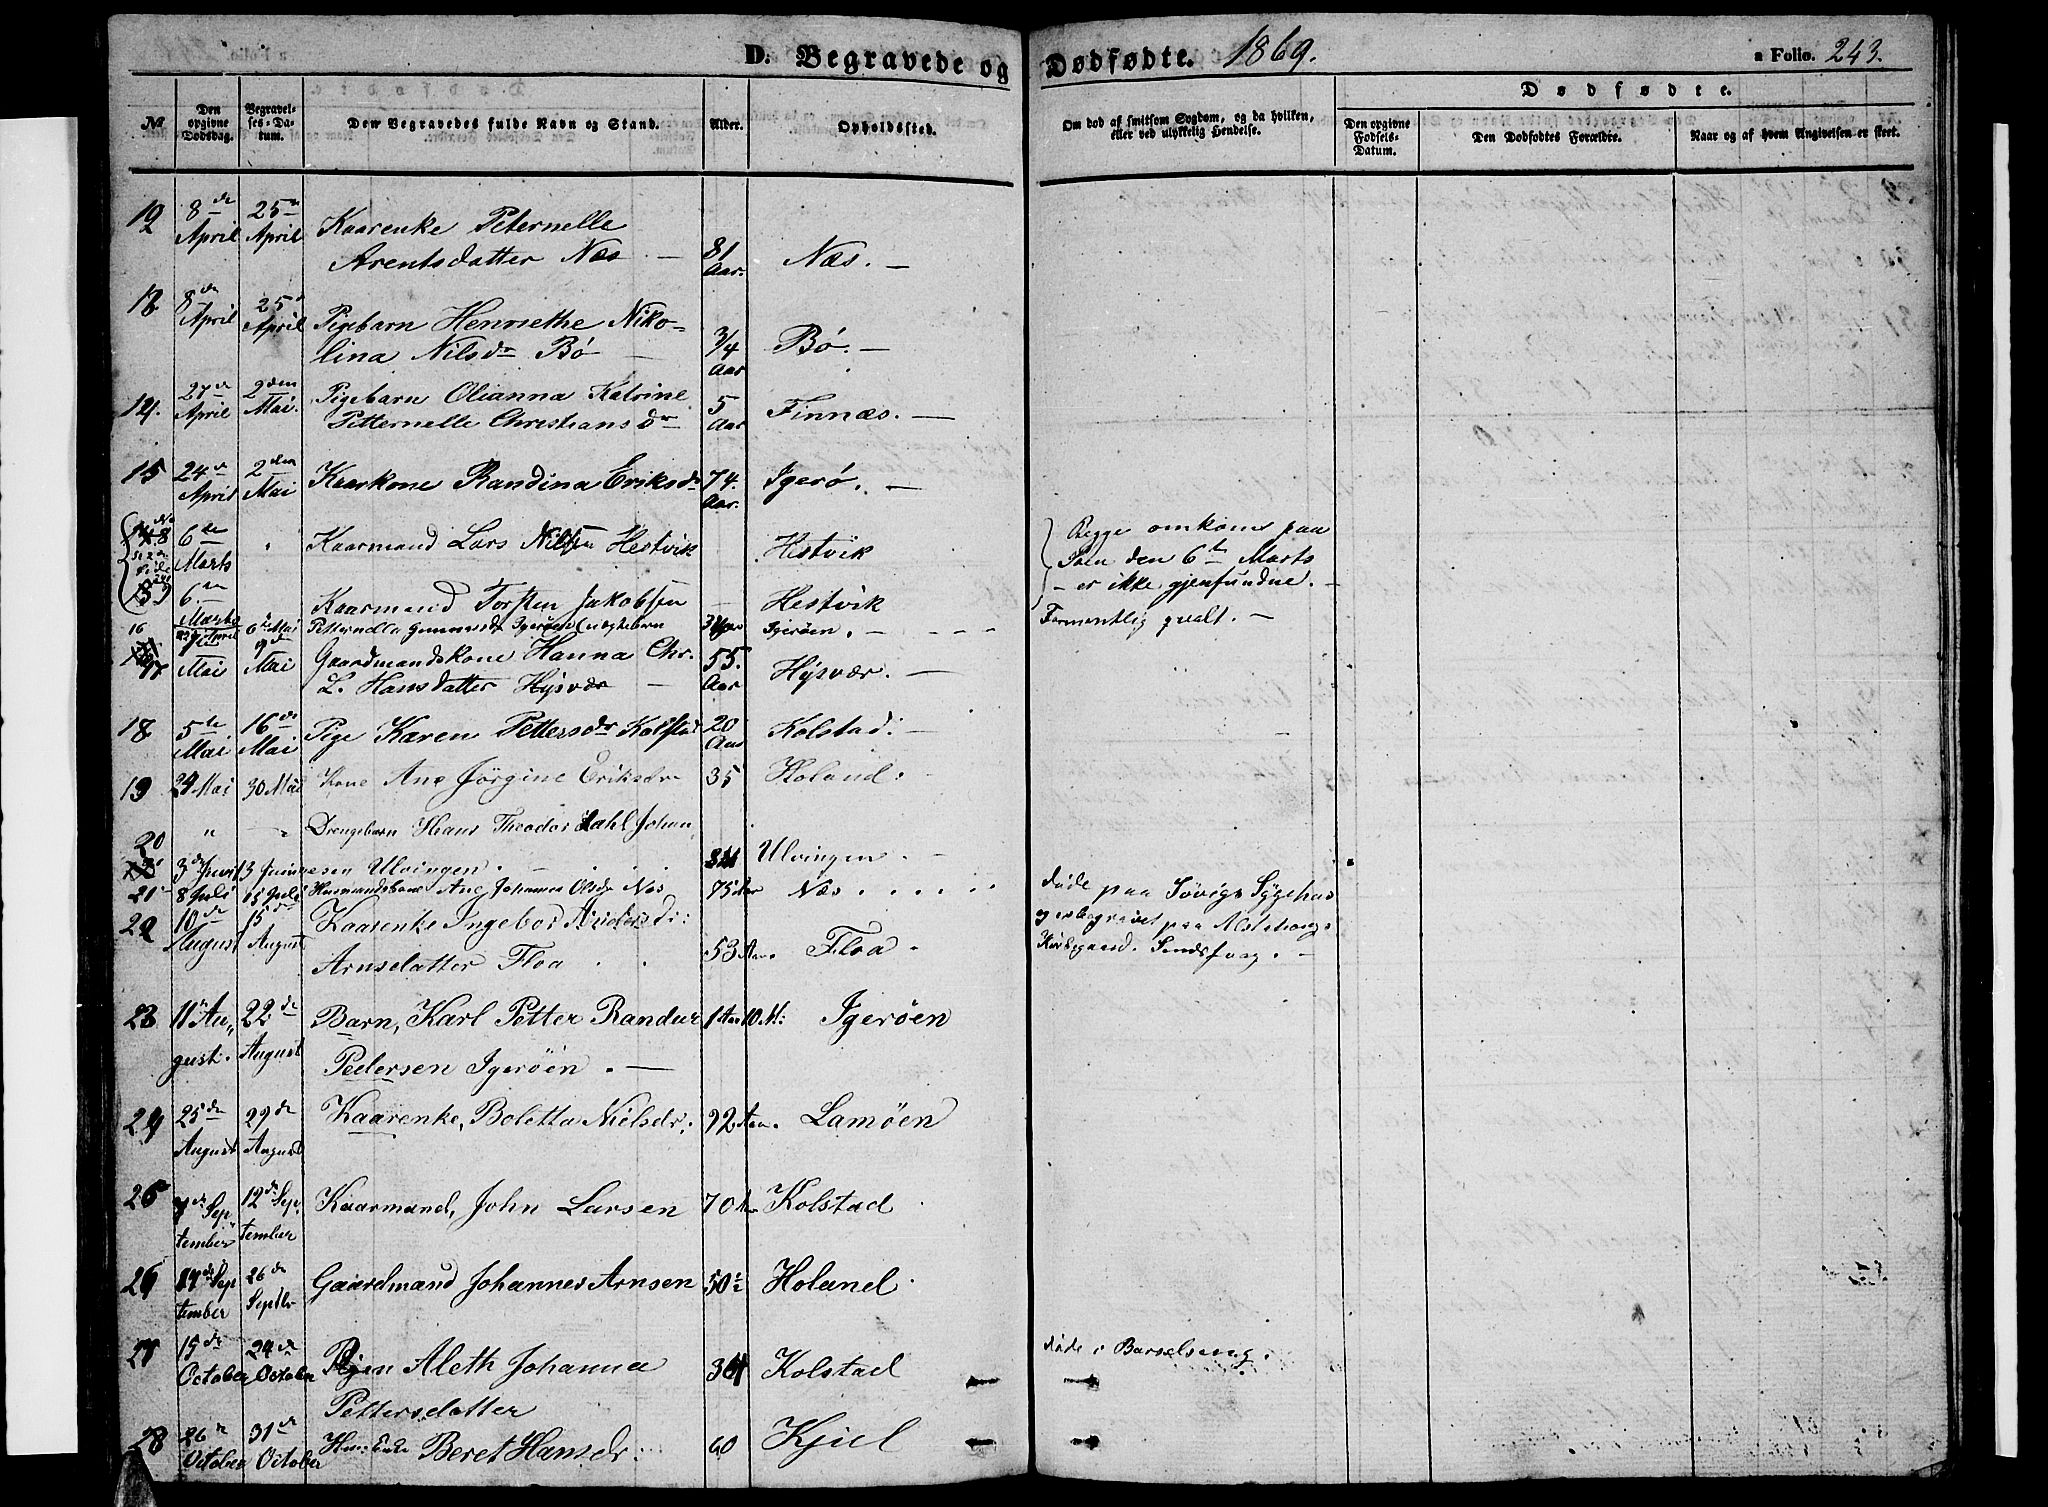 D. Begravede og Dødfødte. 1869. a Folio. 243.
Dødfødte.
№ Den opgivne Dødsdag. Begravelses-Datum. Den Begravedes fulde Navn og Stand. Alder. Opholdssted. Om død af smitsom Sygdom, og da hvilken, eller ved ulykkelig Hendelse. Den opgivne Fødsels-Datum. Den Dødfødtes Forældre. Naar og af hvem Angivelsen er skeet.
12 8de April 25de April Kaarenke Peternelle
Arentsdatter Næs — 81 Aar. Næs. —
8de April 25de April Pigebarn Henriethe Niko-
lina Nilsdr Bø — 3/4 Aar Bø. —
14. 27de April 2den Mai. Pigebarn Olianna Katrine
Petternelle Christiansdr 5 Aar Finnæs. —
15 24de April 2den Mai Kaarkone Randina Eriksdr 74. Aar. Igerø. —
6te Marts " Kaarmand Lars Nilsen Hestvik Hestvik Begge omkom paa
Søen den 6te Marts
6te Marts Kaarmand Torsten Jakobsen — Hestvik – er ikke gjenfundne. –
16 27 April 6te Mai Petternella Igerøen Igerøen. — Formentlig qvalt. —
17 Mai 9de Mai Gaardmandskone Hanna Chr.
L. Hansdatter Hysvær — 55. Aar Hysvær. —
18 5te Mai 16de Mai Pige Karen Pettersdr Kolstad 20 Aar Kolstad. —
19 24 Mai 30 Mai Kone Ane Jörgine Eriksdr 35 Holand. —
20 " — Drengebarn Hans Theodor Dahl Johan
3de Juni 3 Juni nesen Ulvingen. — Ulvingen. —
21 8 Juli 15 Juli Husmandskone Ane Johanna Olsdr Næs 75 Aar Næs. Døde paa Søvigs Sygehus
22 10de August 15de August Kaarenke Ingebor Andersdr: og er begravet paa Alstahougs
Arnsdatter Floa 53 Aar. Floa. Kirkegaard.
23 11te August. 22de August Barn, Karl Petter Randur 1 Aar 10 M: Igerøen
Pedersen Igerøen. —
24 25de August 29de August Kaarenke, Boletta Nielsdr. 92 Aar. Lamøen
25 7de September 12de September Kaarmand, John Larsen 70 Aar Kolstad
26 19de September 26de Septbr Gaardmand Johannes Arnsen 50 Holand.
27 15de October 24de October Pigen Aleth Johanna
Pettersdatter Kolstad Døde i Barselseng.
28 26de October 31de October Enke Beret Hansdr: 60 Kjul